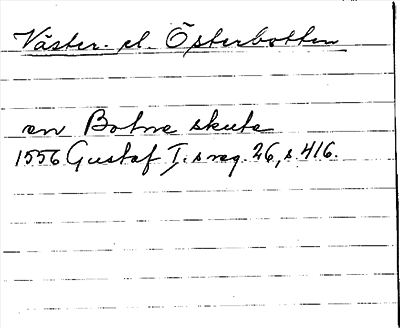 Väster- el. Österbotten
en Botne skuta
1556 Gustaf I:s reg. 26, s. 416.